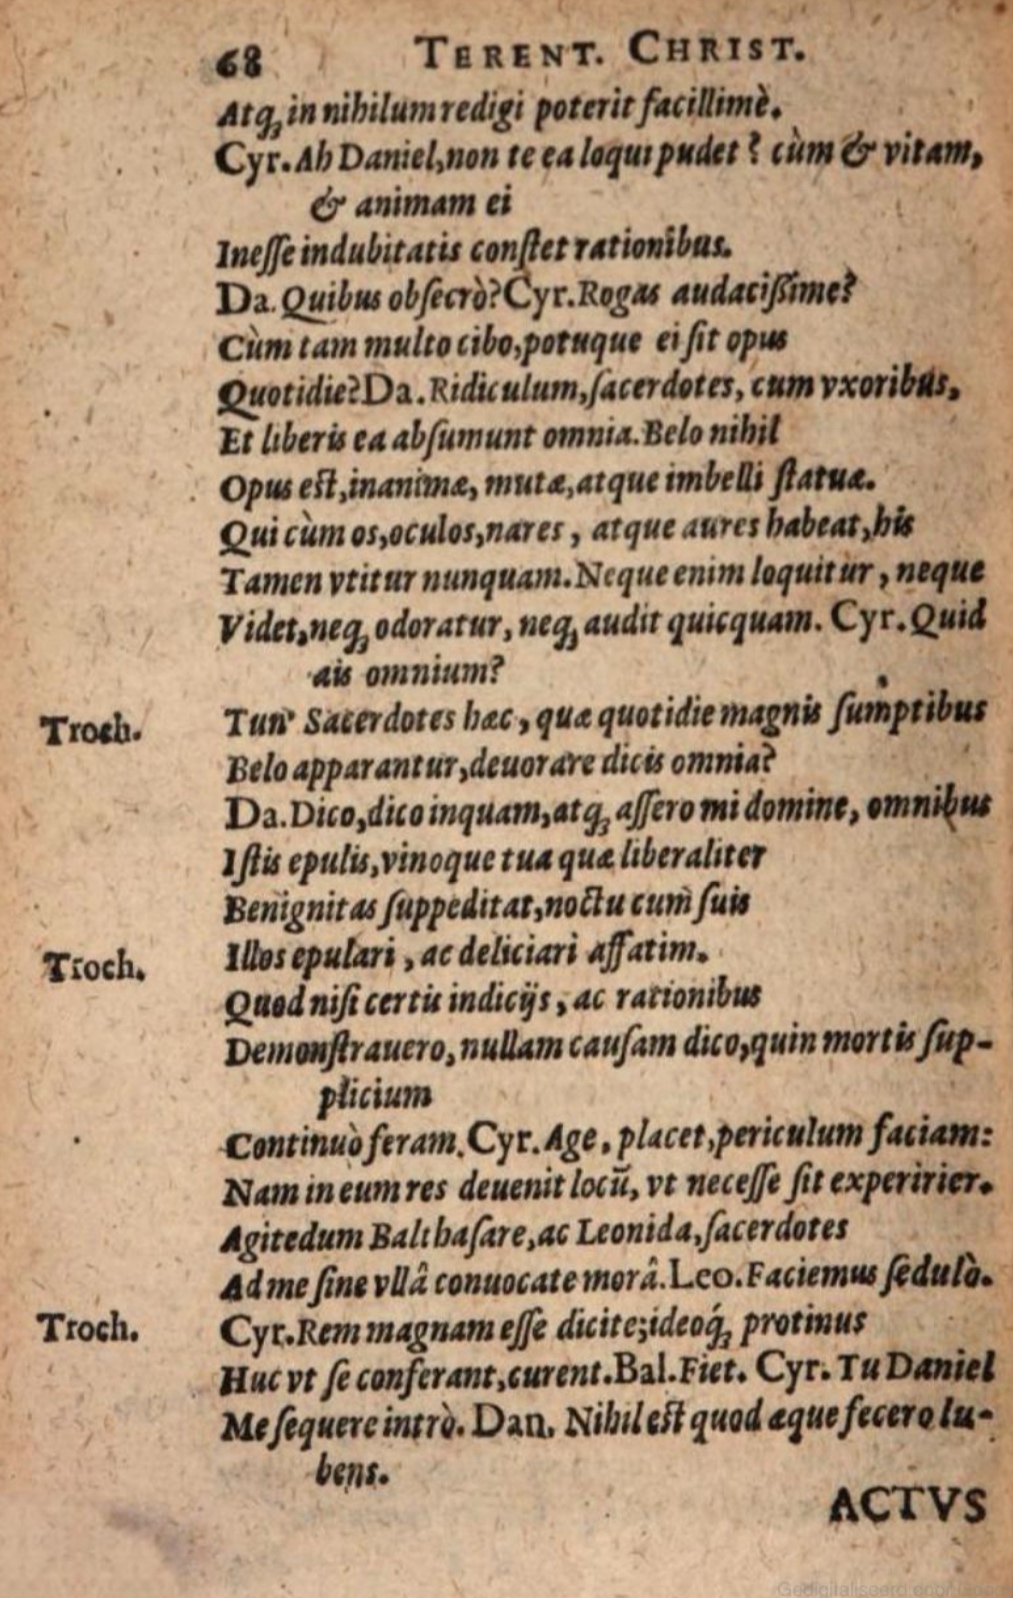 68 TERENT. CHRIST.
Atq́; in nihilum redigi poterit facillimè.
Cyr. Ah Daniel, non te ea loqui pudet? cùm & vitam,
& animam ei
Ineſſe indubitatis conſtet rationibus.
Da. Quibus obſecrò? Cyr. Rogas audaciſſime?
Cùm tam multo cibo, potuque ei ſit opus
Quotidie? Da. Ridiculum, ſacerdotes, cum vxoribus,
Et liberis ea abſumunt omnia. Belo nihil
Opus eſt, inanimæ, mutæ, atque imbelli ſtatuæ.
Qui cùm os, oculos, nares, atque aures habeat, his
Tamen vtitur nunquam. Neque enim loquitur, neque
Videt, neq; odoratur, neq; audit quicquam. Cyr. Quid
ais omnium?
Troch. Tun' Sacerdotes hæc, quæ quotidie magnis ſumptibus
Belo apparantur, deuorare dicis omnia?
Da. Dico, dico inquam, atq; aſſero mi domine, omnibus
Iſtis epulis, vinoque tua quæ liberaliter
Benignitas ſuppeditat, noctu cum ſuis
Troch. Illos epulari, ac deliciari affatim.
Quod niſi certis indicijs, ac rationibus
Demonſtrauero, nullam cauſam dico, quin mortis ſup-
plicium
Continuò feram. Cyr. Age, placet, periculum faciam:
Nam in eum res deuenit locū, vt neceſſe ſit experirier.
Agitedum Balthaſare, ac Leonida, ſacerdotes
Ad me ſine vllâ conuocate morâ. Leo. Faciemus ſedulò.
Troch. Cyr. Rem magnam eſſe dicite; ideoq́; protinus
Huc vt ſe conferant, curent. Bal. Fiet. Cyr. Tu Daniel
Me ſequere intrò. Dan. Nihil eſt quod æque fecero lu-
bens.
ACTVS